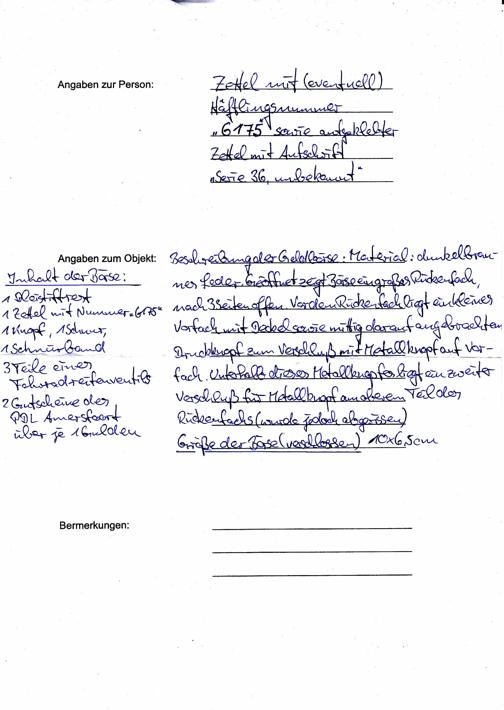 Angaben zur Person:
Zettel mit (eventuell)
Häftlingsnummer
„6175“ sowie aufgeklebter
Zettel mit Aufschrift
„Serie 36, unbekannt“
Angaben zum Objekt:
Beschreibung der Geldbörse: Material: dunkelbrau-
nes Leder. Geöffnet zeigt Börse ein großes Rückenfach,
nach 3 Seiten offen. Vor dem Rückenfach liegt ein kleines
Vorfach mit Deckel sowie mittig darauf angebrachten
Druckknopf zum Verschluß mit Metallknopf auf Vor-
fach. Unterhalb dieses Metallknopfes liegt ein zweiter
Verschluß für Metallknopf am oberen Teil des
Rückenfachs (wurde jedoch abgerissen)
Größe der Börse (verschlossen) 10x6,5cm
Inhalt der Börse:
1 Bleistiftrest
1 Zettel mit Nummer „6175“
1 Knopf, 1 Schnur,
1 Schnürband
3 Teile eines
Fahrradreifenventils
2 Gutscheine des
PDL Amersfoort
über je 1 Gulden
Bermerkungen: